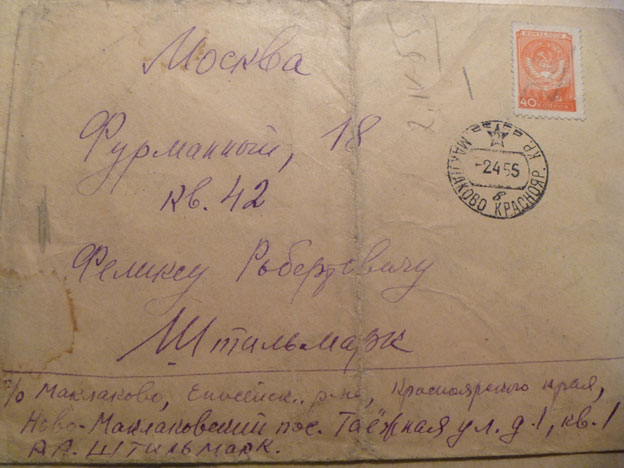 Москва
Фурманный, 18
кв. 42
Феликсу Робертовичу
Штильмарк
п/о Маклаково, Енисейск. р-на, Красноярского края,
Ново-Маклаковский пос. Таёжная ул. д. 1, кв. 1
А.А. ШТИЛЬМАРК.
40
МАКЛАКОВО КРАСНОЯР. КР.
-2455
в